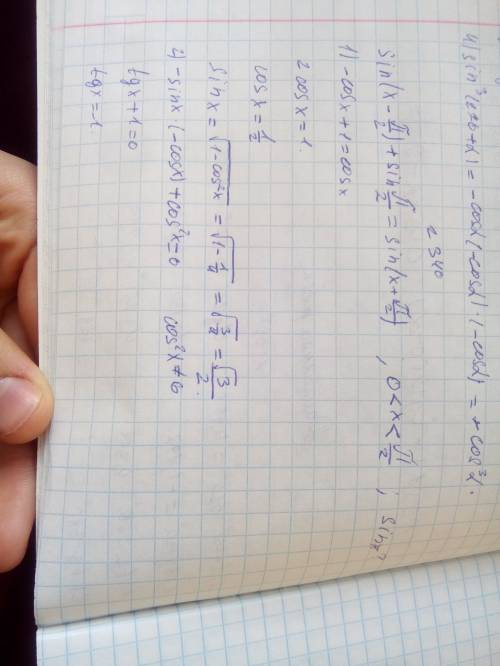 4) sin³(270+α) = -cosα(-cosα)(-cosα) = + cos³α.
2 340
sin(x - π/2) + sin π/2 = sin(x + π/2) , 0 < x < π/2 ; sinx-?
1) -cosx + 1 = cosx
2 cosx = 1.
cosx = 1/2
sinx = √(1-cos²x) = √(1 - 1/4) = √(3/4) = √3/2.
2) -sinx · (-cosx) + cos²x = 0 cos²x ≠ 0
tgx + 1 = 0
tgx = -1.